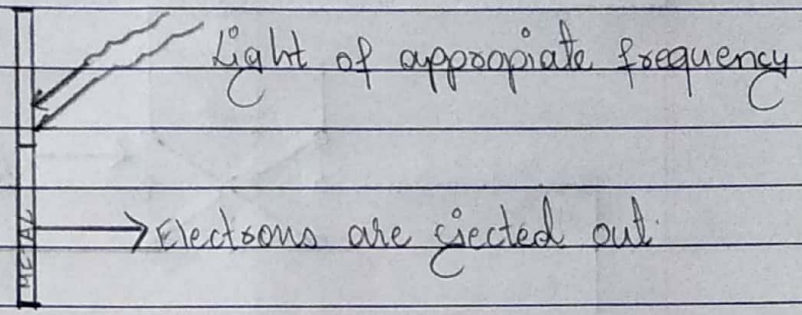 Light of appropiate frequency
Electrons are ejected out.
METAL